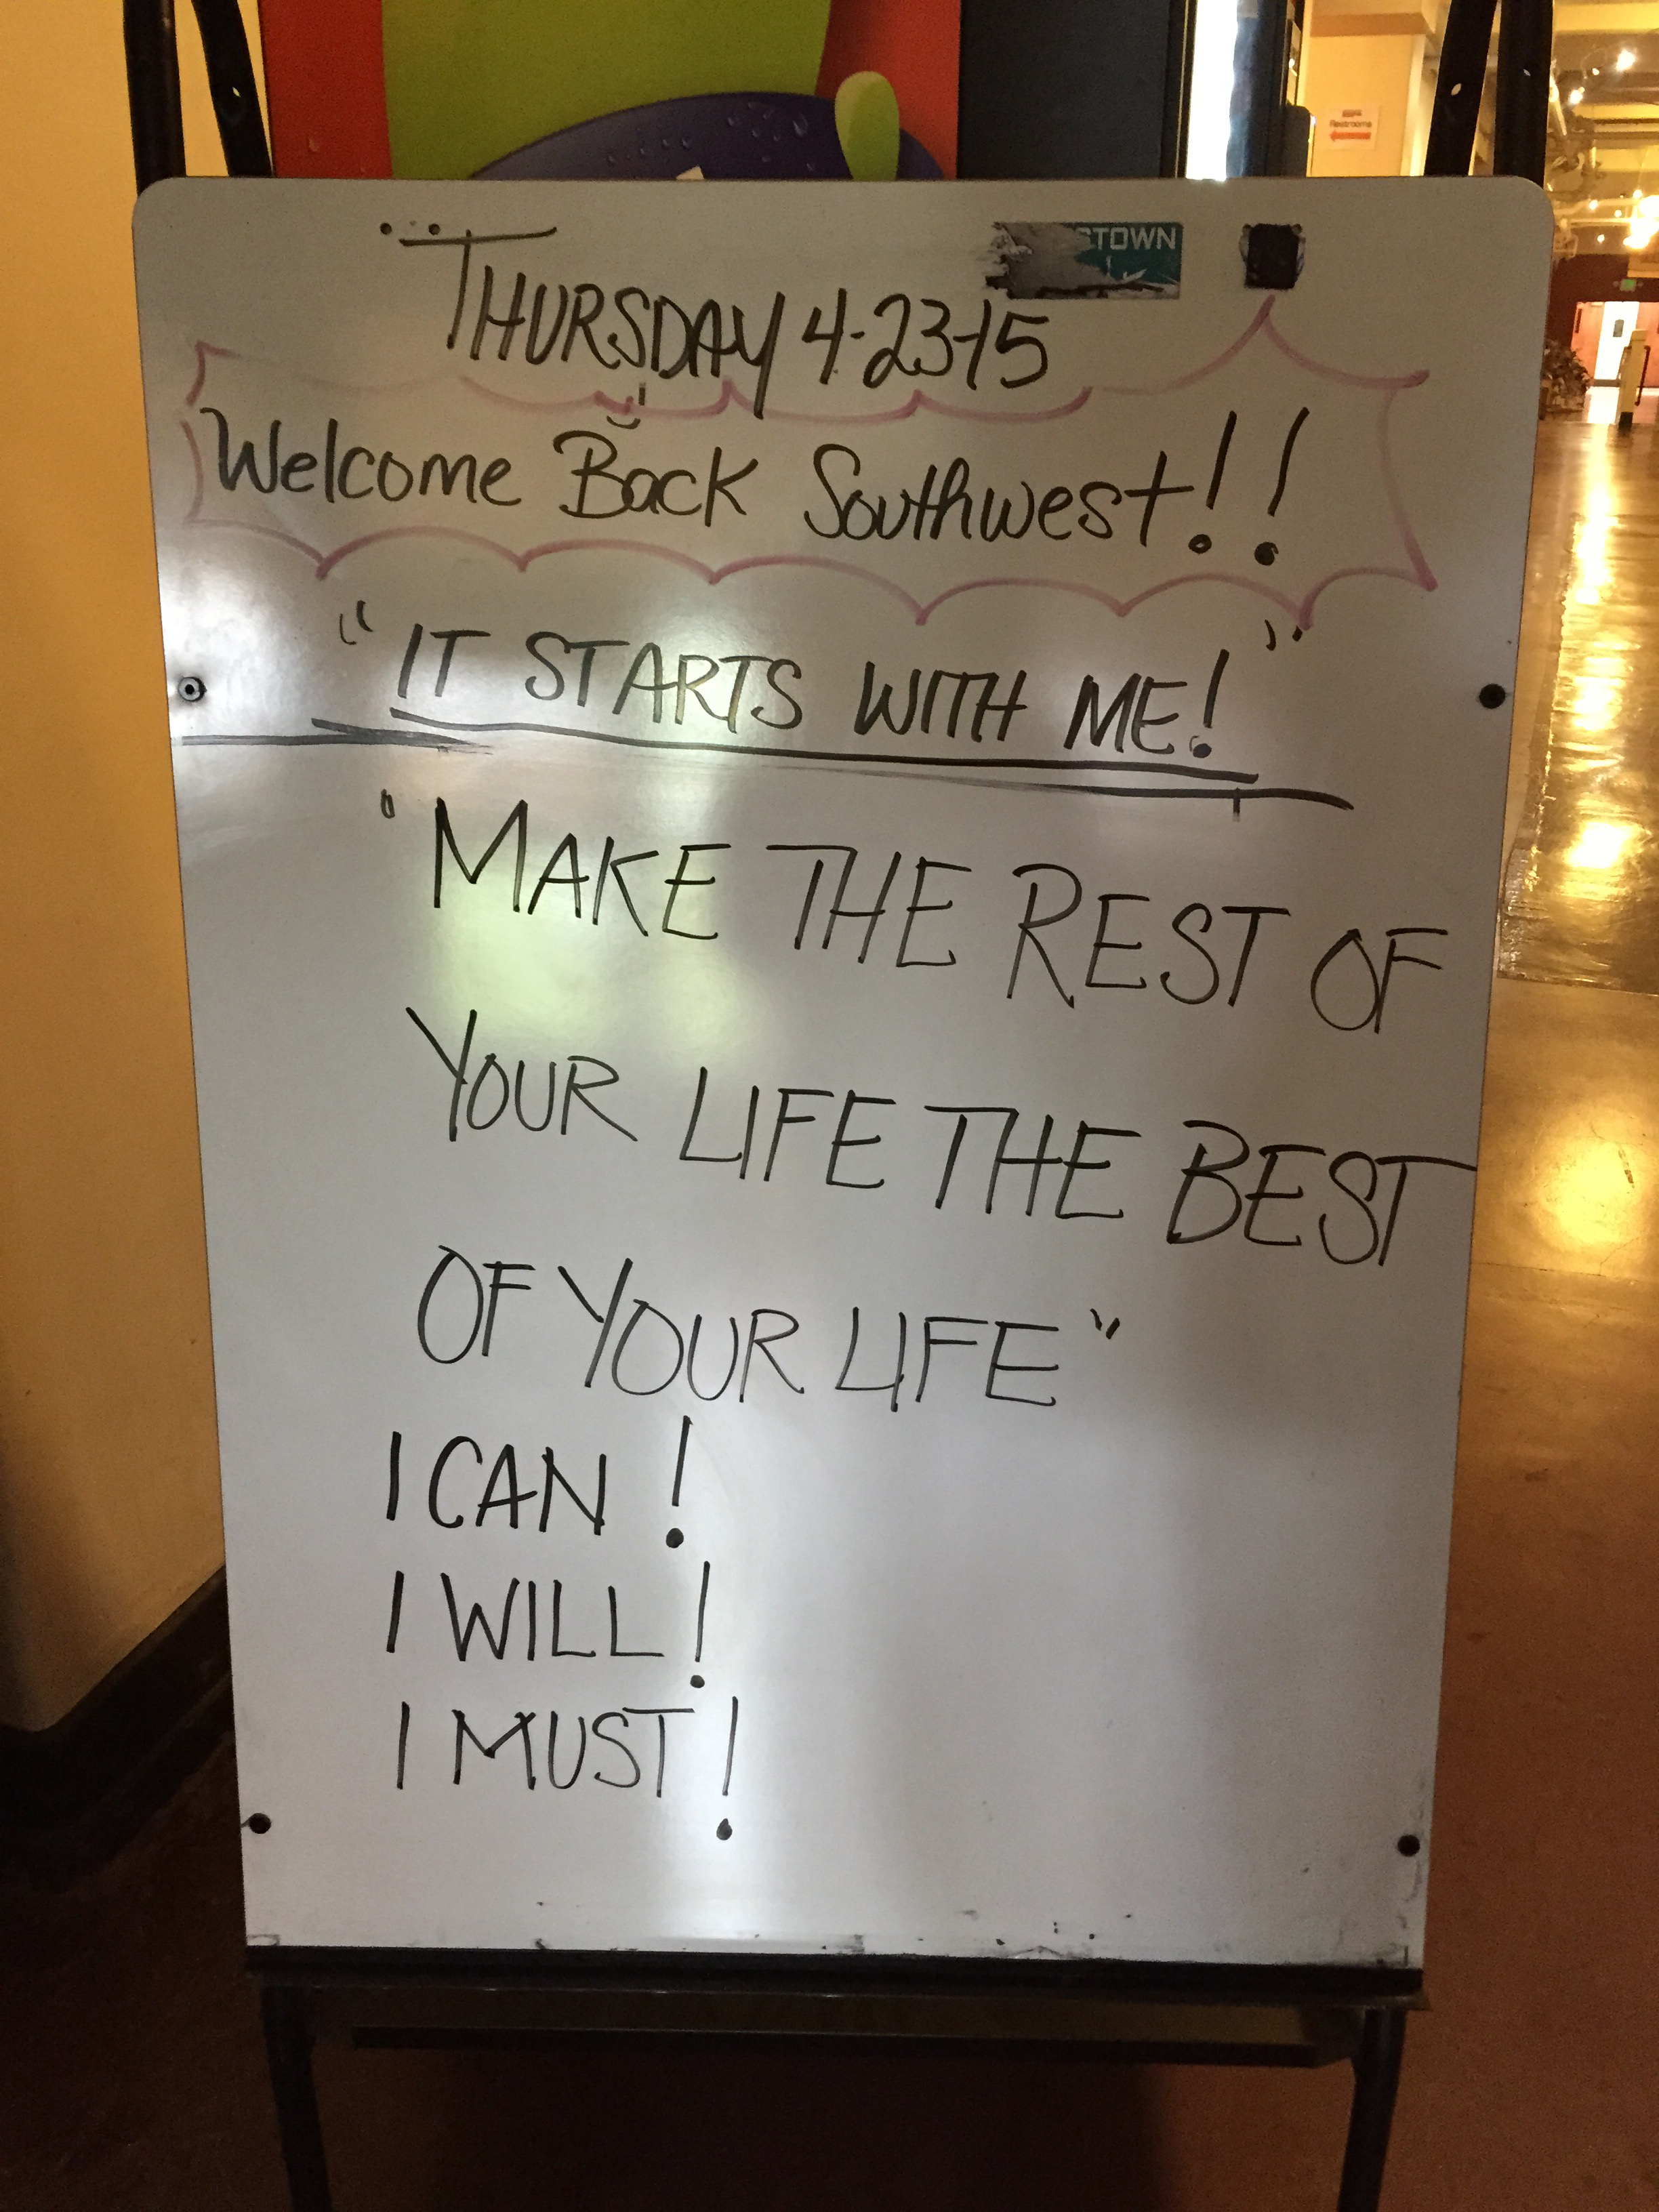 STOWN
THURSDAY 4-23-15
Welcome Back Southwest!!
"IT STARTS WITH ME!"
"MAKE THE REST OF
YOUR LIFE THE BEST
OF YOUR LIFE"
I CAN!
I WILL!
I MUST!
Restrooms